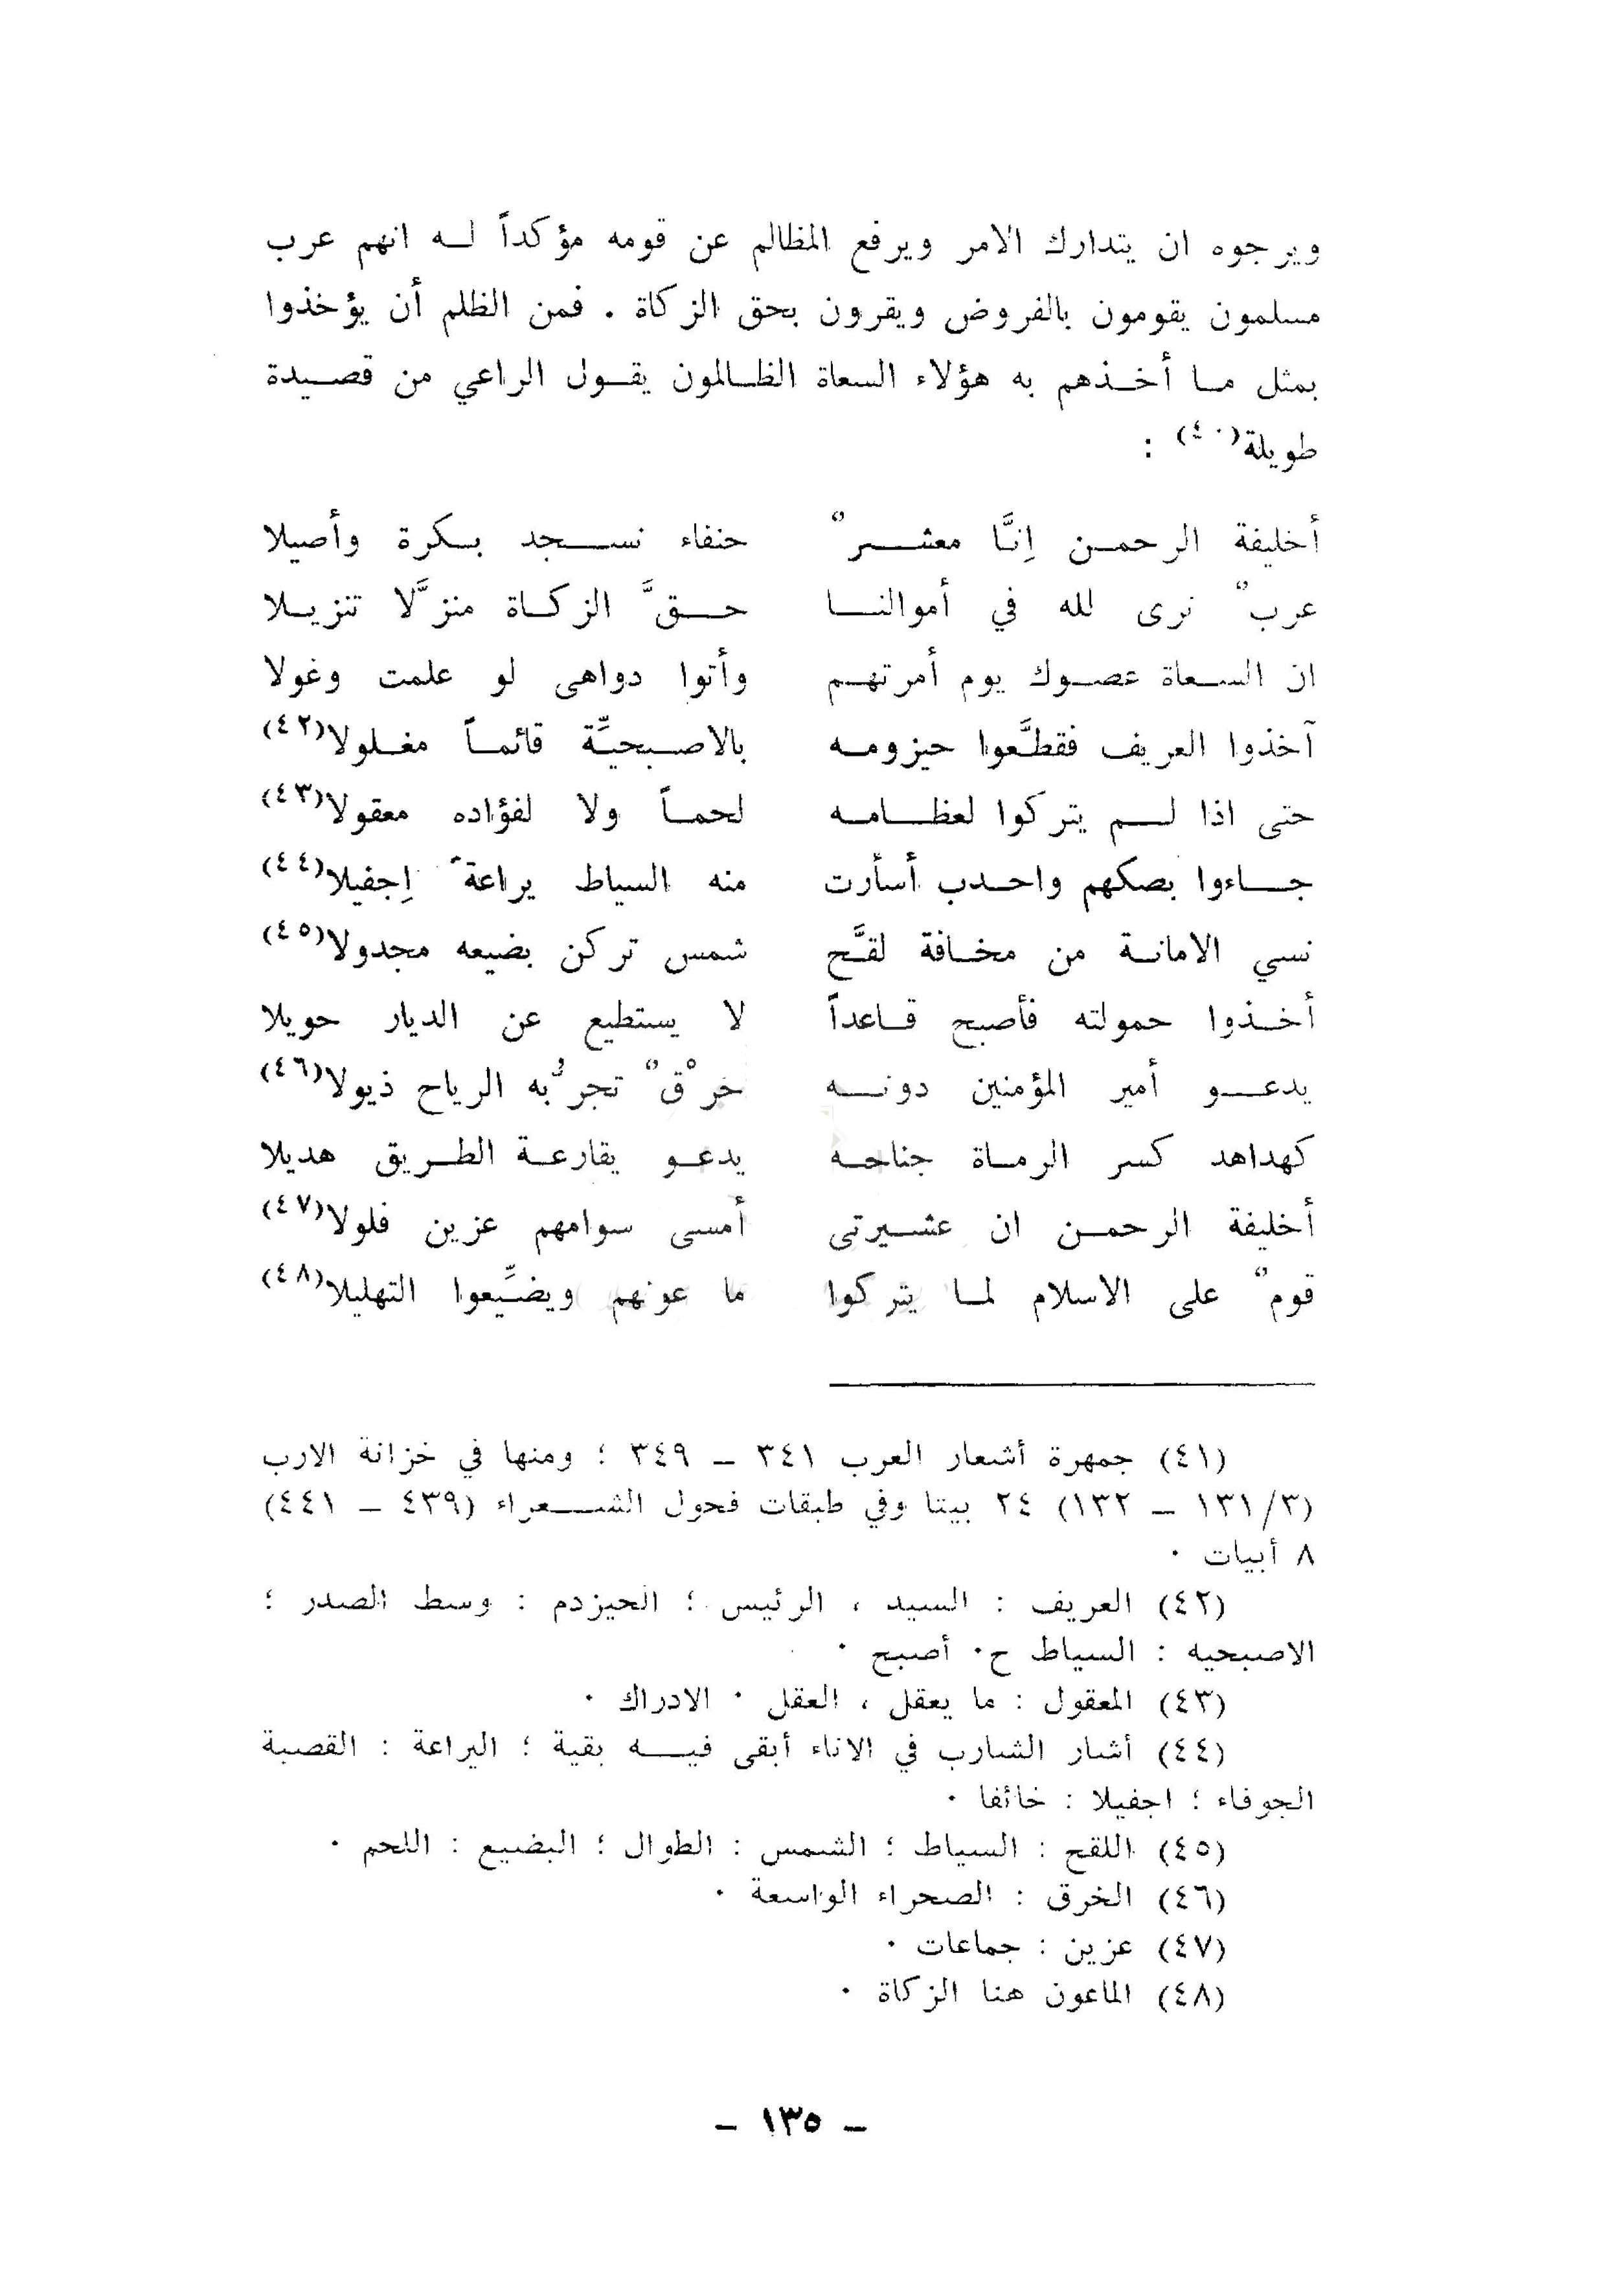 ويرجوه ان يتدارك الامر ويرفع المظالم عن قومه مؤكداً لـه انهم عرب
مسلمون يقومون بالفروض ويقرون بحق الزكاة . فمن الظلم أن يؤخذوا
بمثل ما أخذهم به هؤلاء السعاة الظالمون يقول الراعي من قصيدة
طويلة(٤٠) :
أخليفة الرحمن إنَّا معشرٌ حنفاء نسجد بكرة وأصيلا
عربٌ نرى لله في أموالنا حقَّ الزكاة منزَّلا تنزيلا
ان السعاة عصوك يوم أمرتهم وأتوا دواهى لو علمت وغولا
آخذوا العريف فقطَّعوا حيزومه بالاصبحيَّة قائماً مغلولا(٤٢)
حتى اذا لم يتركوا لعظامه لحماً ولا لفؤاده معقولا(٤٣)
جاءوا بصكهم واحدب أسأرت منه السياط يراعةً إجفيلا(٤٤)
نسي الامانة من مخافة لقَّح شمس تركن بضيعه مجدولا(٤٥)
أخذوا حمولته فأصبح قاعداً لا يستطيع عن الديار حويلا
يدعو أمير المؤمنين دونه خرْقٌ تجرُّ به الرياح ذيولا(٤٦)
كهداهد كسر الرماة جناحه يدعو يقارعة الطريق هديلا
أخليفة الرحمن ان عشيرتى أمسى سوامهم عزين فلولا(٤٧)
قومٌ على الاسلام لما يتركوا ما عونهم ويضيِّعوا التهليلا(٤٨)
(٤١) جمهرة أشعار العرب ٣٤١ – ٣٤٩ ؛ ومنها في خزانة الارب
(٣/١٣١ – ١٣٢) ٢٤ بيتا وفي طبقات فحول الشعراء (٤٣٩ – ٤٤١)
٨ أبيات .
(٤٢) العريف : السيد ، الرئيس ؛ الحيزدم : وسط الصدر ؛
الاصبحيه : السياط ح. أصبح .
(٤٣) المعقول : ما يعقل ، العقل . الادراك .
(٤٤) أشار الشارب في الاناء أبقى فيه بقية ؛ اليراعة : القصبة
الجوفاء ؛ اجفيلا : خائفا .
(٤٥) اللقح : السياط ؛ الشمس : الطوال ؛ البضيع : اللحم .
(٤٦) الخرق : الصحراء الواسعة .
(٤٧) عزين : جماعات .
(٤٨) الماعون هنا الزكاة .
– ١٣٥ –